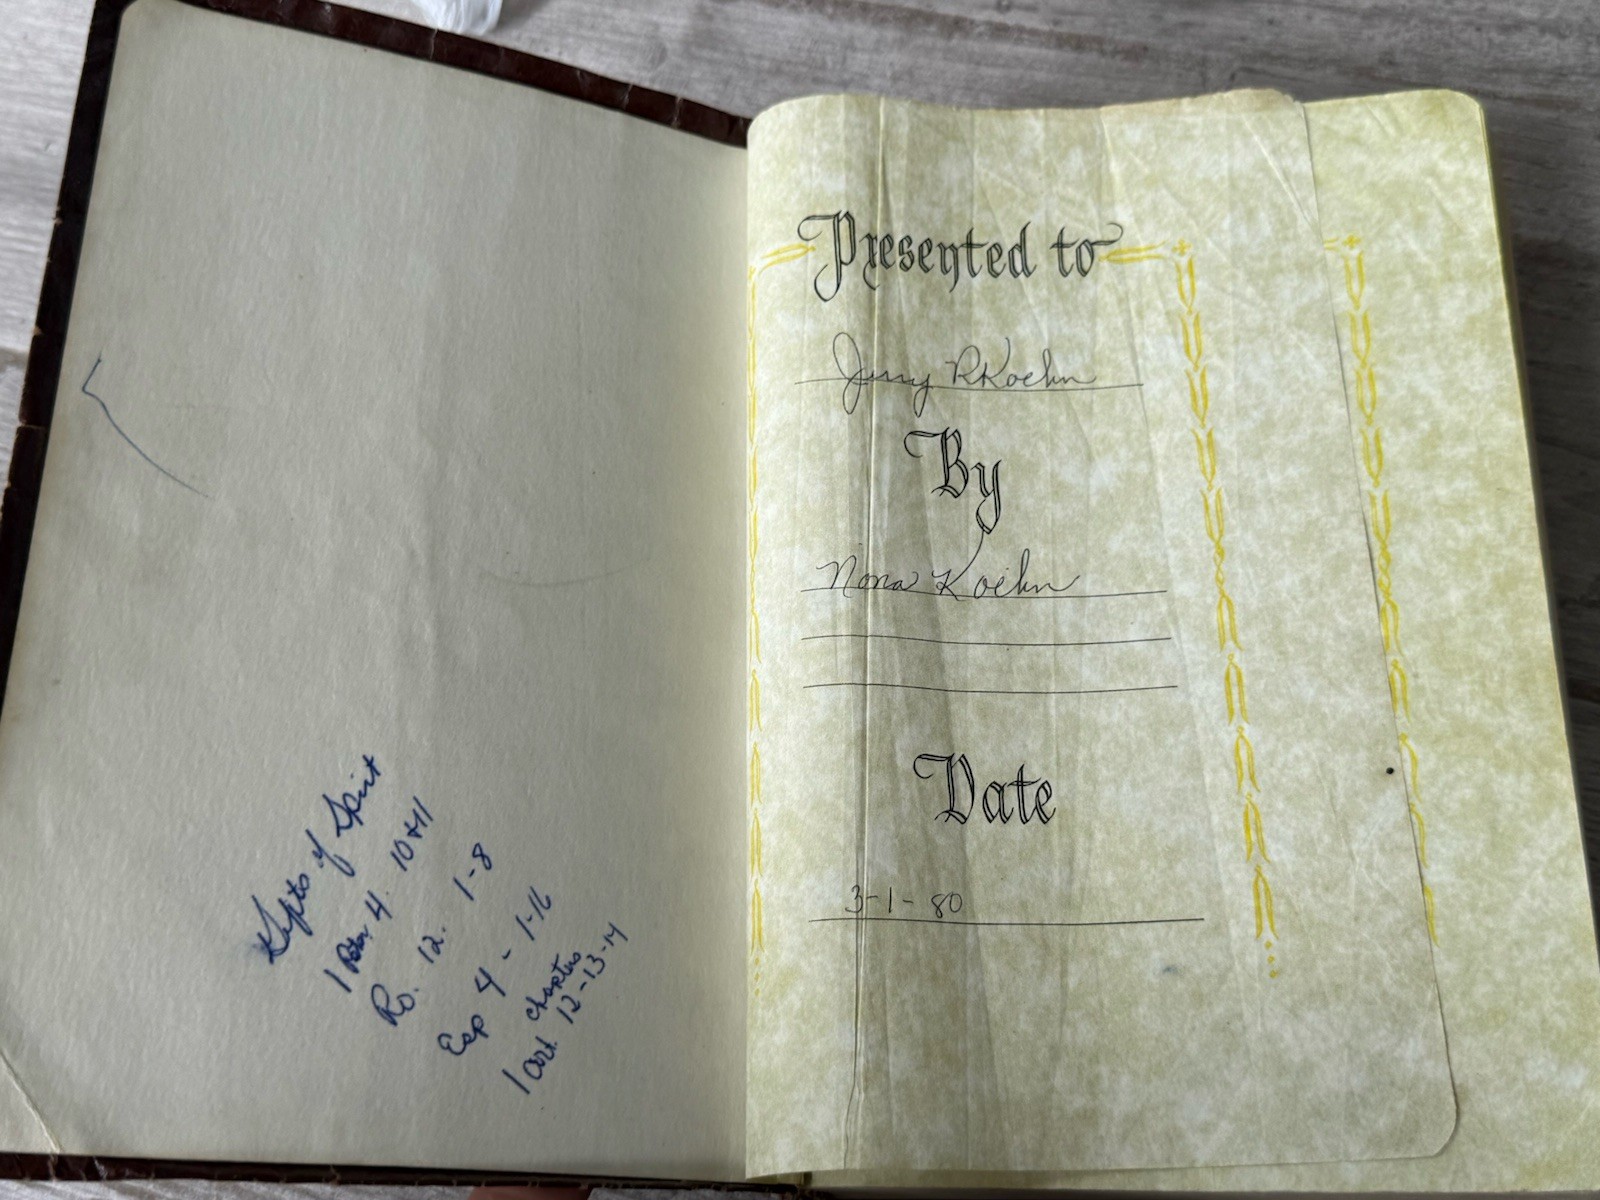 Gifts of Spirit
1 Peter 4. 10+11
Ro. 12. 1-8
Eep 4 - 1-16
chapters
1 Cort. 12-13-14
Presented to
Jerry R Koehn
By
Nona Koehn
Date
3-1-80